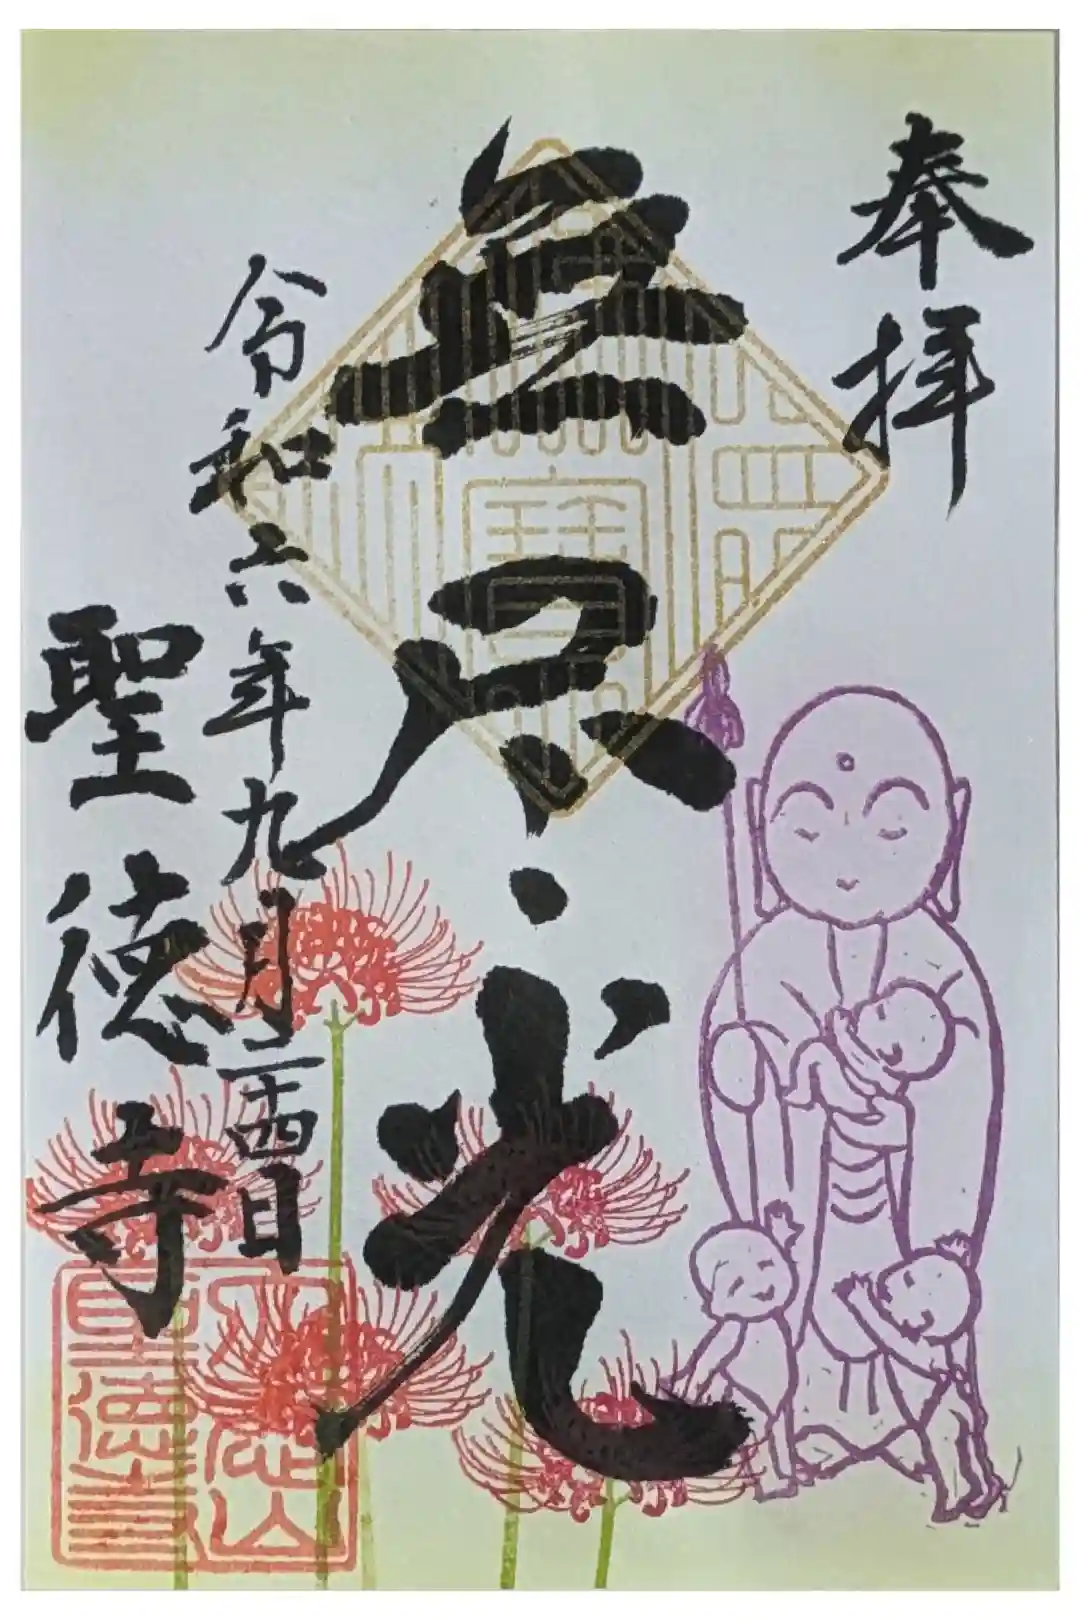 奉拝
無尽光
令和六年九月二十四日
聖徳寺
聖徳寺